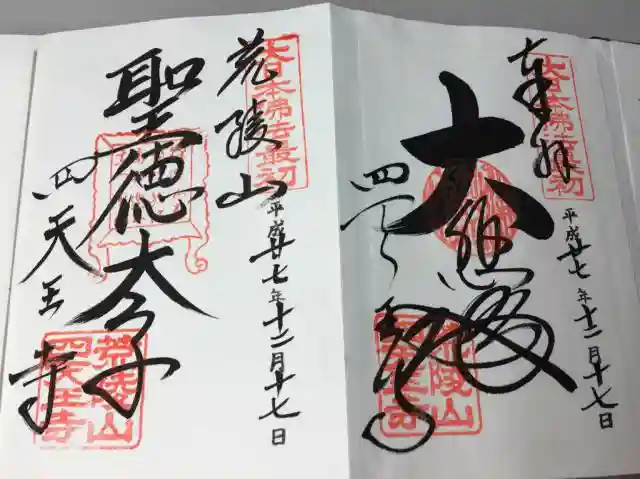 奉拝
大日本佛法最初
平成廿七年十二月十七日
大悲殿
四天王寺
荒陵山
四天王寺
荒陵山
大日本佛法最初
平成廿七年十二月十七日
聖徳太子
四天王寺
荒陵山
四天王寺